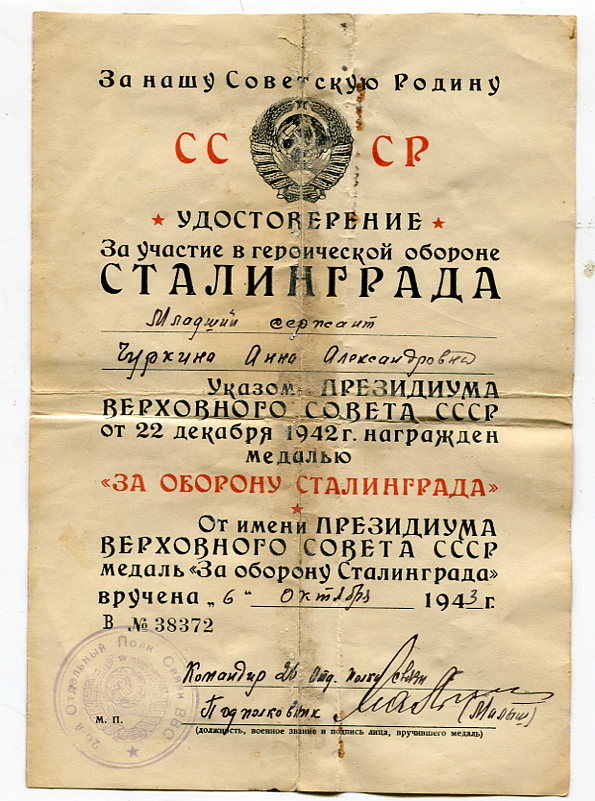 За нашу Советскую Родину
СССР
УДОСТОВЕРЕНИЕ
За участие в героической обороне
СТАЛИНГРАДА
Младший сержант
Чуркина Анна Александровна
Указом ПРЕЗИДИУМА
ВЕРХОВНОГО СОВЕТА СССР
от 22 декабря 1942 г. награжден
медалью
«ЗА ОБОРОНУ СТАЛИНГРАДА»
От имени ПРЕЗИДИУМА
ВЕРХОВНОГО СОВЕТА СССР
медаль «За оборону Сталинграда»
вручена „6" Октября 1943 г.
В № 38372
Командир 26 отд. полка связи
Подполковник (Малыш)
М. П.
(должность, военное звание и подпись лица, вручившего медаль)
26й Отдельный Полк Связи ВВС